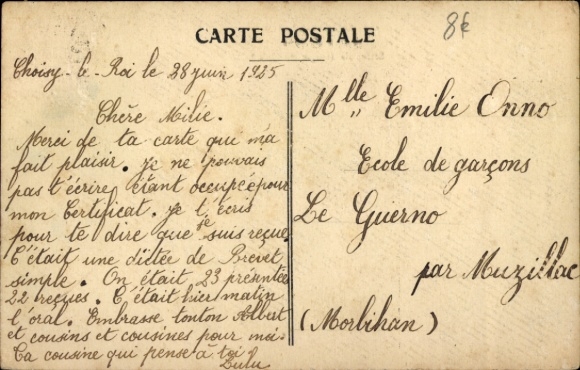 8€
CARTE POSTALE
Choisy-le-Roi le 28 juin 1925
Chère Milie.
Merci de ta carte que m'a
fait plaisir. Je ne pouvais
pas t'écrire étant occupée pour
mon Certificat. Je t'écris
pour te dire que je suis reçue.
C'était une dictée de Brevet
simple. On était 23 présentées
22 reçues. C'était hier matin
l'oral. Embrasse tonton Albert
et cousins et cousines pour moi.
Ta cousine qui pense à toi
Lulu
Mlle Emilie Onno
Ecole de garçons
Le Guerno
par Muzillac
(Morbihan)